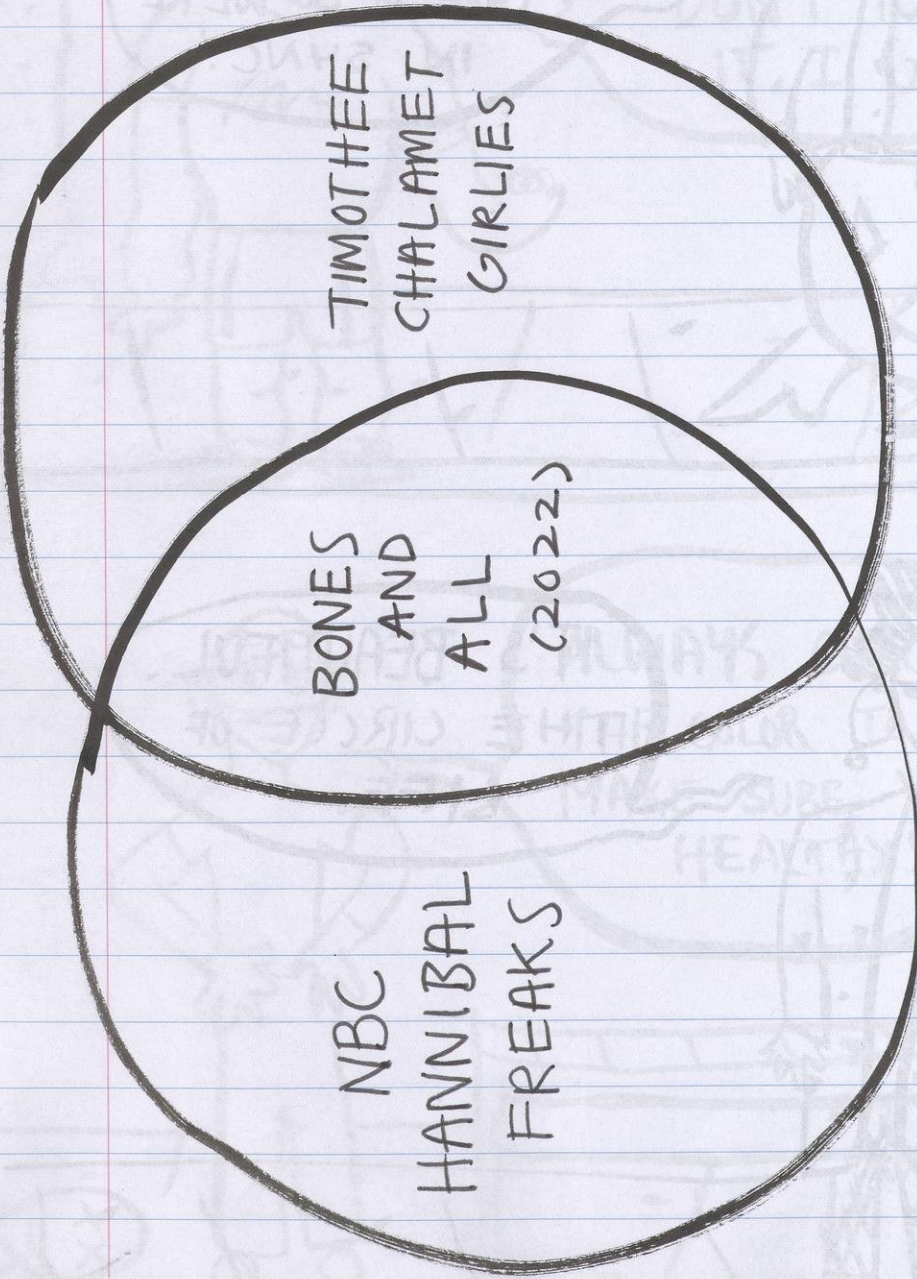 NBC
HANNIBAL
FREAKS
BONES
AND
ALL
(2022)
TIMOTHEE
CHALAMET
GIRLIES